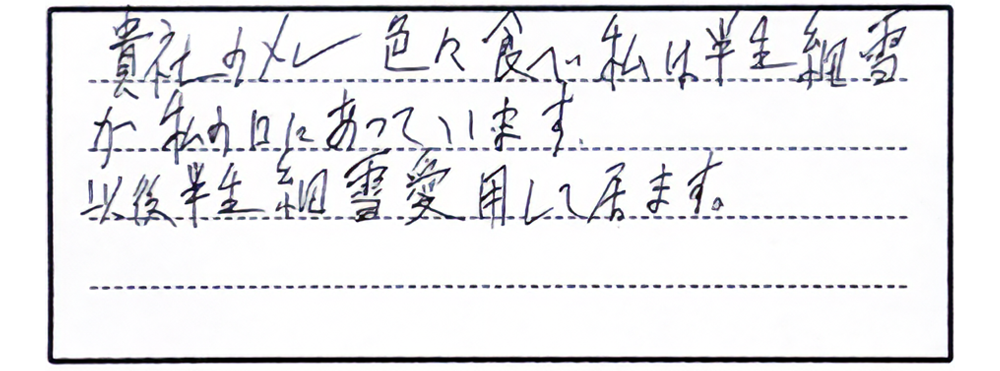 貴社のメン色々食べ私は半生細雪
が私の口にあっています。
以後半生細雪愛用して居ます。